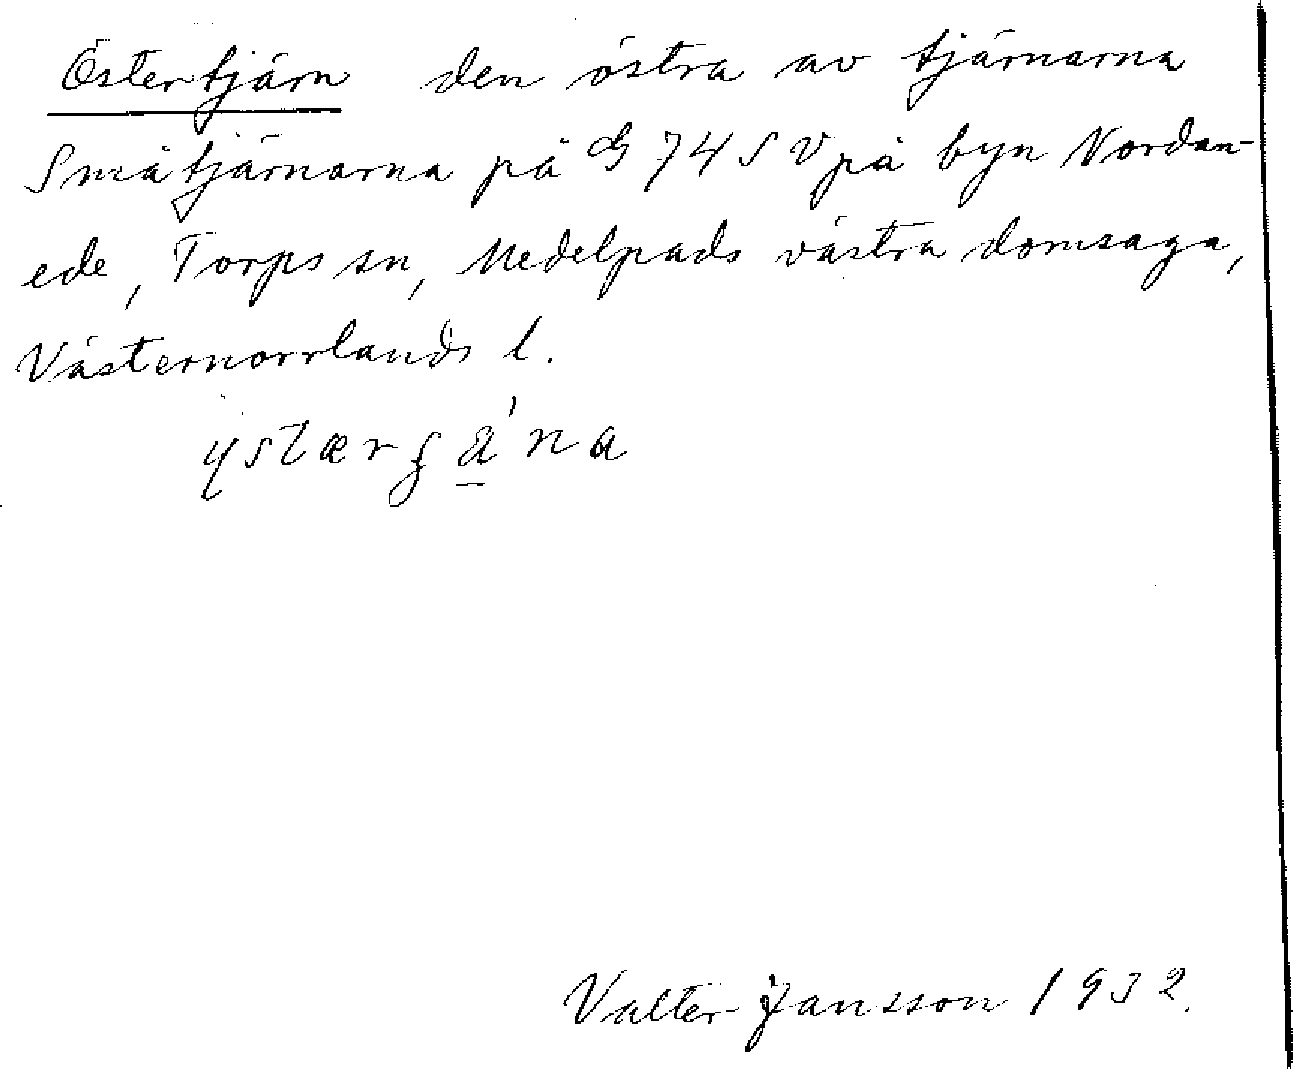 Östertjärn den östra av tjärnarna
Småtjärnarna på G 74 S V på byn Nordan-
ede, Torps sn, Medelpads västra domsaga,
Västernorrlands l.
Valter Jansson 1932.